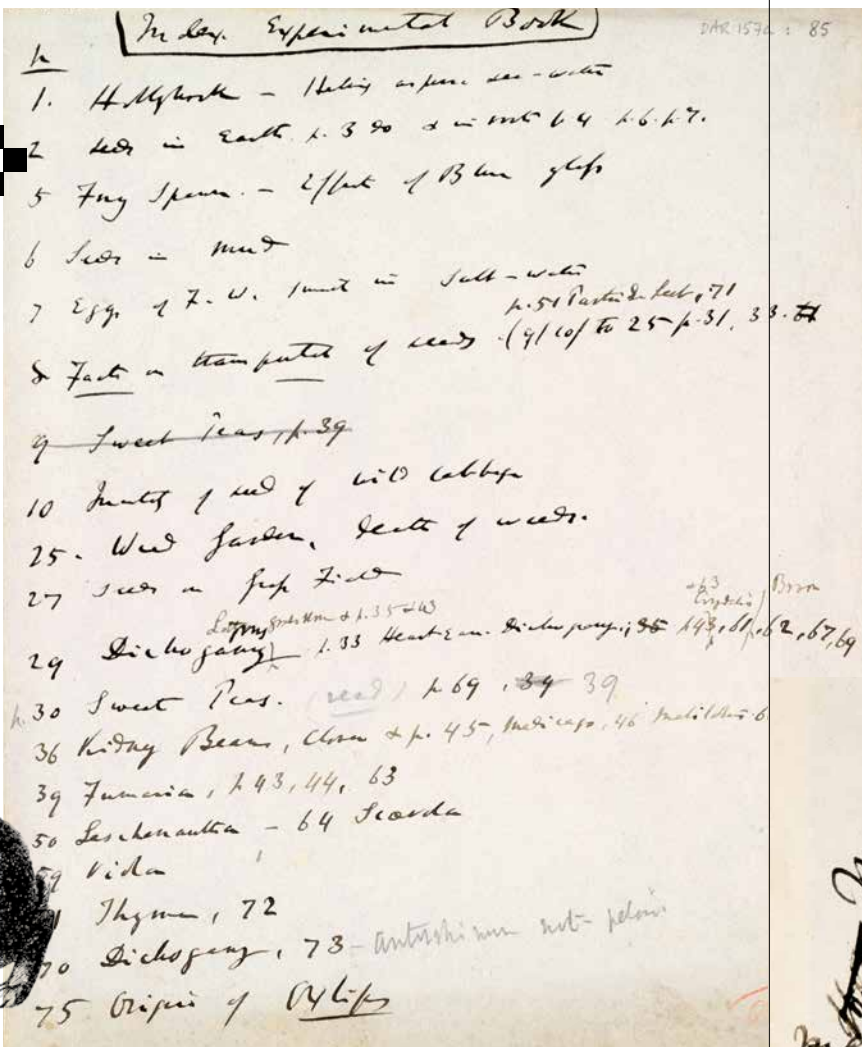 Index. Experimental Book
DAR 157a : 85
p
1. Hollyhock – Helix aspersa sea-water
2 Seeds in Earth p. 3 do & in p. 4 p. 6. p. 7.
5 Frog Spawn. – Effect of Blue glass
6 Seeds in mud
7 Eggs of F. W. in Salt-water
p. 51 71
8 Facts on transportal of seeds (9/ 10/ to 25 p. 31, 33.
9 Sweet Peas, p. 39
10 of seed of wild cabbage
25. Weed Garden, death of weeds.
27 Seeds in Field
& p. 35 & 43
29 Dichogamy p. 33 Dichogamy, 35 p 43, 61, 62, 67, 69
p. 30 Sweet Peas. (seed) p 69, 39 39
36 Kidney Beans, Clover & p. 45, Medicago, 46 Melilotus 6
39 Fumaria, p 43, 44, 63
50 Leschenaultia – 64 Scaevola
Viola
Thyme, 72
70 Dichogamy, 73 – Antirrhinum not peloric
75 Origin of Oxlips